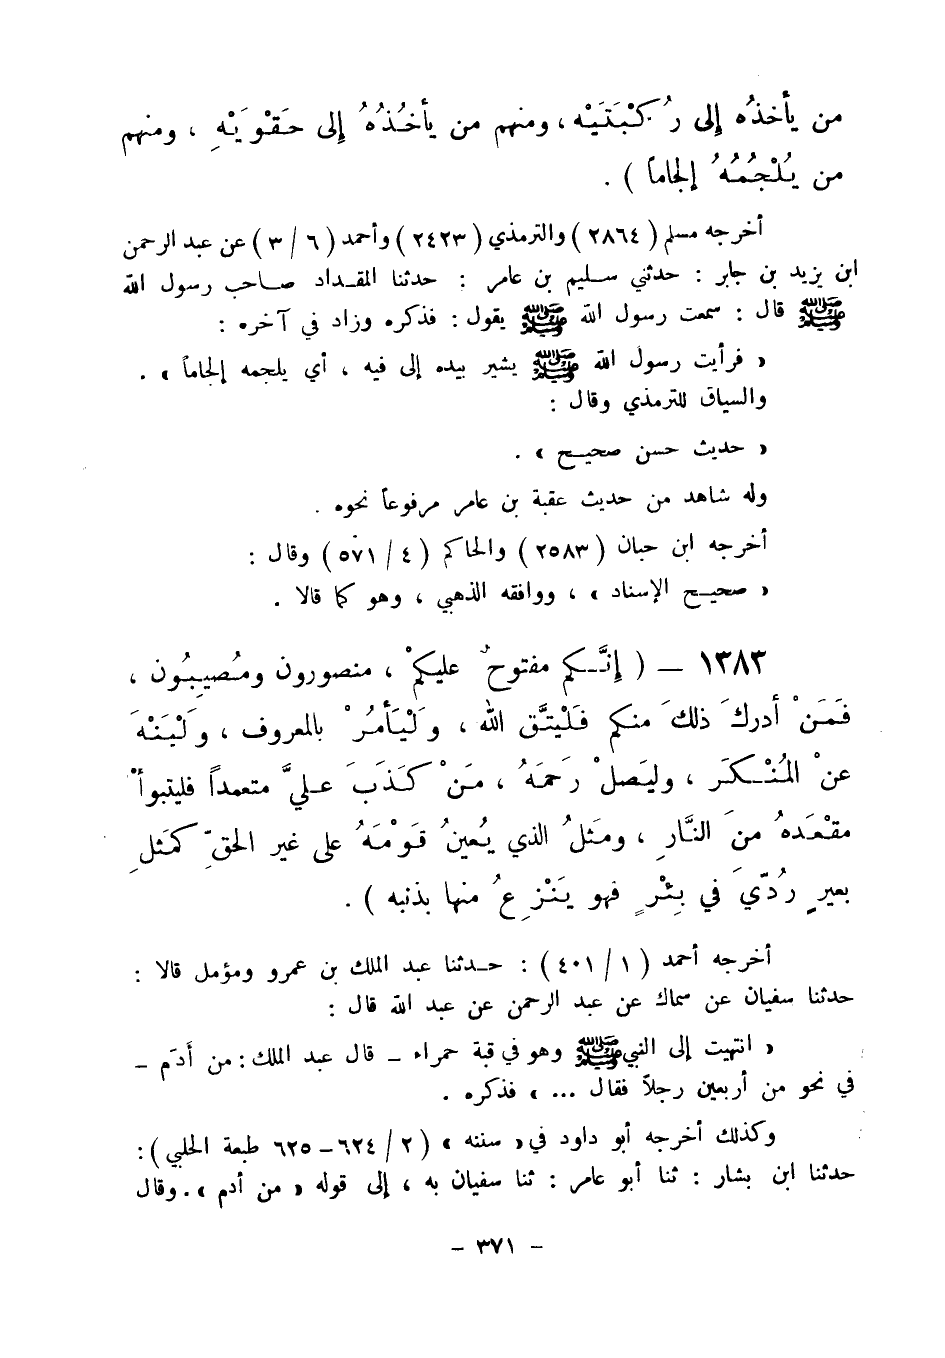 من يأخذُه إلى رُكْبَتَيْه، ومنهم من يأخُذُهُ إلى حَقْوَيْهِ ، ومنهم
من يُلْجُمُهُ إلجاماً ) .
أخرجه مسلم ( ٢٨٦٤ ) والترمذي ( ٢٤٢٣ ) وأحمد ( ٦ / ٣ ) عن عبد الرحمن
ابن يزيد بن جابر : حدثني سليم بن عامر : حدثنا المقداد صاحب رسول الله
ﷺ قال : سمعت رسول الله ﷺ يقول : فذكره وزاد في آخره :
« فرأيت رسول الله ﷺ يشير بيده إلى فيه ، أي يلجمه إلجاماً » .
والسياق للترمذي وقال :
« حديث حسن صحيح » .
وله شاهد من حديث عقبة بن عامر مرفوعاً نحوه .
أخرجه ابن حبان ( ٢٥٨٣ ) والحاكم ( ٤ / ٥٧١ ) وقال :
« صحيح الإسناد » ، ووافقه الذهبي ، وهو كما قالا .
١٣٨٣ – ( إنَّكم مفتوحٌ عليكمْ ، منصورون ومُصيبُون ،
فَمَنْ أدركَ ذلكَ منكم فَلْيتَّق الله ، ولْيَأمُرْ بالمعروف ، ولْيَنْهَ
عنْ المُنْكَر ، وليَصلْ رَحمَهُ ، مَنْ كَذَبَ عليَّ متعمداً فليتبوأْ
مقْعَدهُ منَ النَّارِ ، ومَثلُ الذي يُعينُ قَوْمَهُ على غير الحقِّ كمَثلِ
بعيرٍ رُدّيَ في بِئْرٍ فهو يَنْزِعُ منها بذنبه ) .
أخرجه أحمد ( ١ / ٤٠١ ) : حدثنا عبد الملك بن عمرو ومؤمل قالا :
حدثنا سفيان عن سماك عن عبد الرحمن عن عبد الله قال :
« انتهيت إلى النبي ﷺ وهو في قبة حمراء – قال عبد الملك : من أَدَم –
في نحو من أربعين رجلاً فقال ... » فذكره .
وكذلك أخرجه أبو داود في « سننه » ( ٢ / ٦٢٤ – ٦٢٥ طبعة الحلبي ) :
حدثنا ابن بشار : ثنا أبو عامر : ثنا سفيان به ، إلى قوله « من أدم » . وقال
– ٣٧١ –